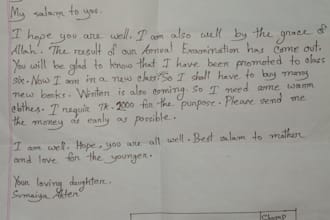 My salam to you.
I hope you are well. I am also well by the grace of
Allah. The result of our Annual Examination has come out.
You will be glad to know that I have been promoted to class
six. Now I am in a new class. So I shall have to buy many
new books. Winter is also coming. So I need some warm
clothes. I require TK. 2000 for the purpose. Please send me
the money as early as possible.
I am well. Hope, you are all well. Best salam to mother
and love for the younger.
Your loving daughter.
Sumaiya Akter
Stamp